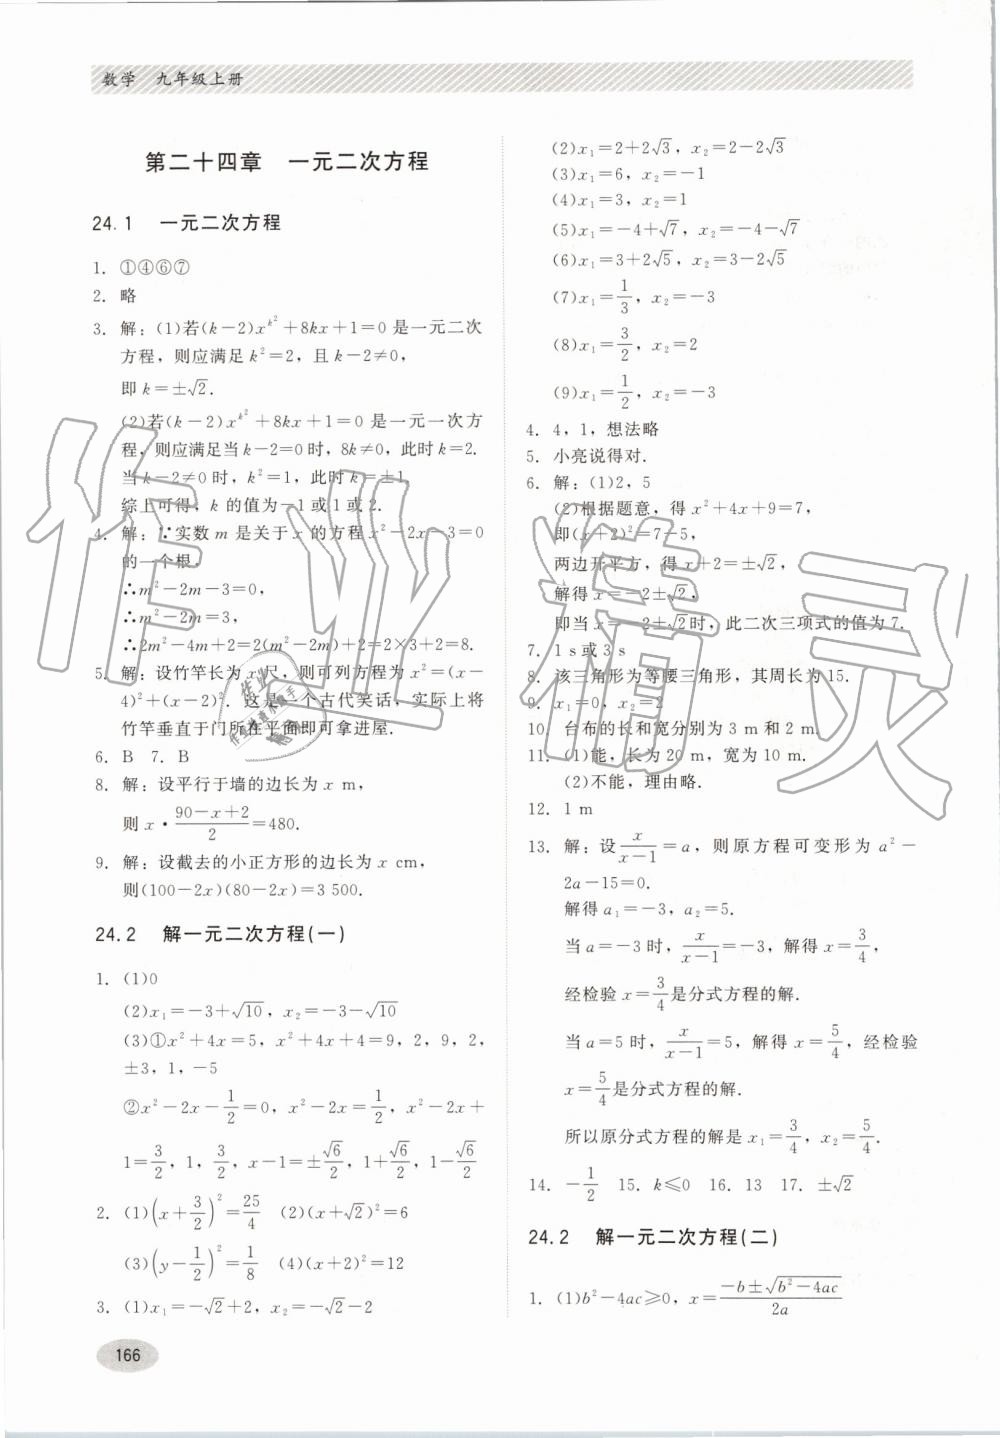 数学 九年级上册
第二十四章 一元二次方程
24.1 一元二次方程
1. ①④⑥⑦
2. 略
3. 解:(1)若(k-2)x^{k²}+8kx+1=0是一元二次
方程,则应满足k²=2,且k-2≠0,
即k=±√2.
(2)若(k-2)x^{k²}+8kx+1=0是一元一次方
程,则应满足当k-2=0时,8k≠0,此时k=2.
当k-2≠0时,k²=1,此时k=±1.
综上可得,k的值为-1或1或2.
4. 解:∵实数m是关于x的方程x²-2x-3=0
的一个根,
∴m²-2m-3=0,
∴m²-2m=3,
∴2m²-4m+2=2(m²-2m)+2=2×3+2=8.
5. 解:设竹竿长为x尺,则可列方程为x²=(x-
4)²+(x-2)². 这是一个古代笑话,实际上将
竹竿垂直于门所在平面即可拿进屋.
6. B 7. B
8. 解:设平行于墙的边长为x m,
则x·(90-x+2)/2=480.
9. 解:设截去的小正方形的边长为x cm,
则(100-2x)(80-2x)=3 500.
24.2 解一元二次方程(一)
1. (1)0
(2)x₁=-3+√10,x₂=-3-√10
(3)①x²+4x=5,x²+4x+4=9,2,9,2,
±3,1,-5
②x²-2x-1/2=0,x²-2x=1/2,x²-2x+
1=3/2,1,3/2,x-1=±√6/2,1+√6/2,1-√6/2
2. (1)(x+3/2)²=25/4 (2)(x+√2)²=6
(3)(y-1/2)²=1/8 (4)(x+2)²=12
3. (1)x₁=-√2+2,x₂=-√2-2
166
(2)x₁=2+2√3,x₂=2-2√3
(3)x₁=6,x₂=-1
(4)x₁=3,x₂=1
(5)x₁=-4+√7,x₂=-4-√7
(6)x₁=3+2√5,x₂=3-2√5
(7)x₁=1/3,x₂=-3
(8)x₁=3/2,x₂=2
(9)x₁=1/2,x₂=-3
4. 4,1,想法略
5. 小亮说得对.
6. 解:(1)2,5
(2)根据题意,得x²+4x+9=7,
即(x+2)²=7-5,
两边开平方,得x+2=±√2,
解得x=-2±√2,
即当x=-2±√2时,此二次三项式的值为7.
7. 1 s或3 s
8. 该三角形为等腰三角形,其周长为15.
9. x₁=0,x₂=2
10. 台布的长和宽分别为3 m和2 m.
11. (1)能,长为20 m,宽为10 m.
(2)不能,理由略.
12. 1 m
13. 解:设x/(x-1)=a,则原方程可变形为a²-
2a-15=0.
解得a₁=-3,a₂=5.
当a=-3时,x/(x-1)=-3,解得x=3/4,
经检验x=3/4是分式方程的解.
当a=5时,x/(x-1)=5,解得x=5/4,经检验
x=5/4是分式方程的解.
所以原分式方程的解是x₁=3/4,x₂=5/4.
14. -1/2 15. k≤0 16. 13 17. ±√2
24.2 解一元二次方程(二)
1. (1)b²-4ac≥0,x=(-b±√(b²-4ac))/2a
作业精灵